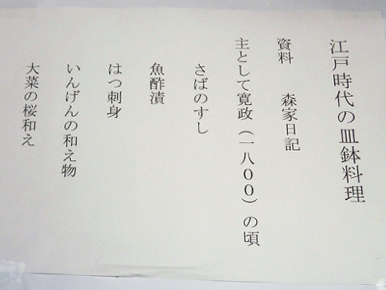 江戸時代の皿鉢料理
資料　森家日記
主として寛政（一八００）の頃
さばのすし
魚酢漬
はつ刺身
いんげんの和え物
大菜の桜和え